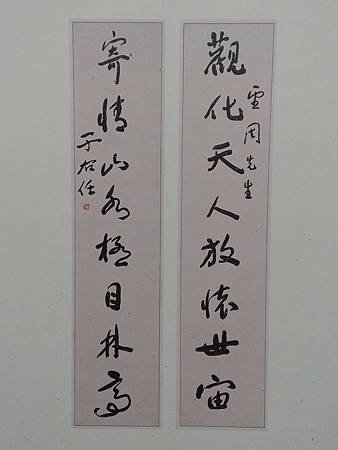 觀化天人放懷世宙
周先生
寄情山水極目林
于右任